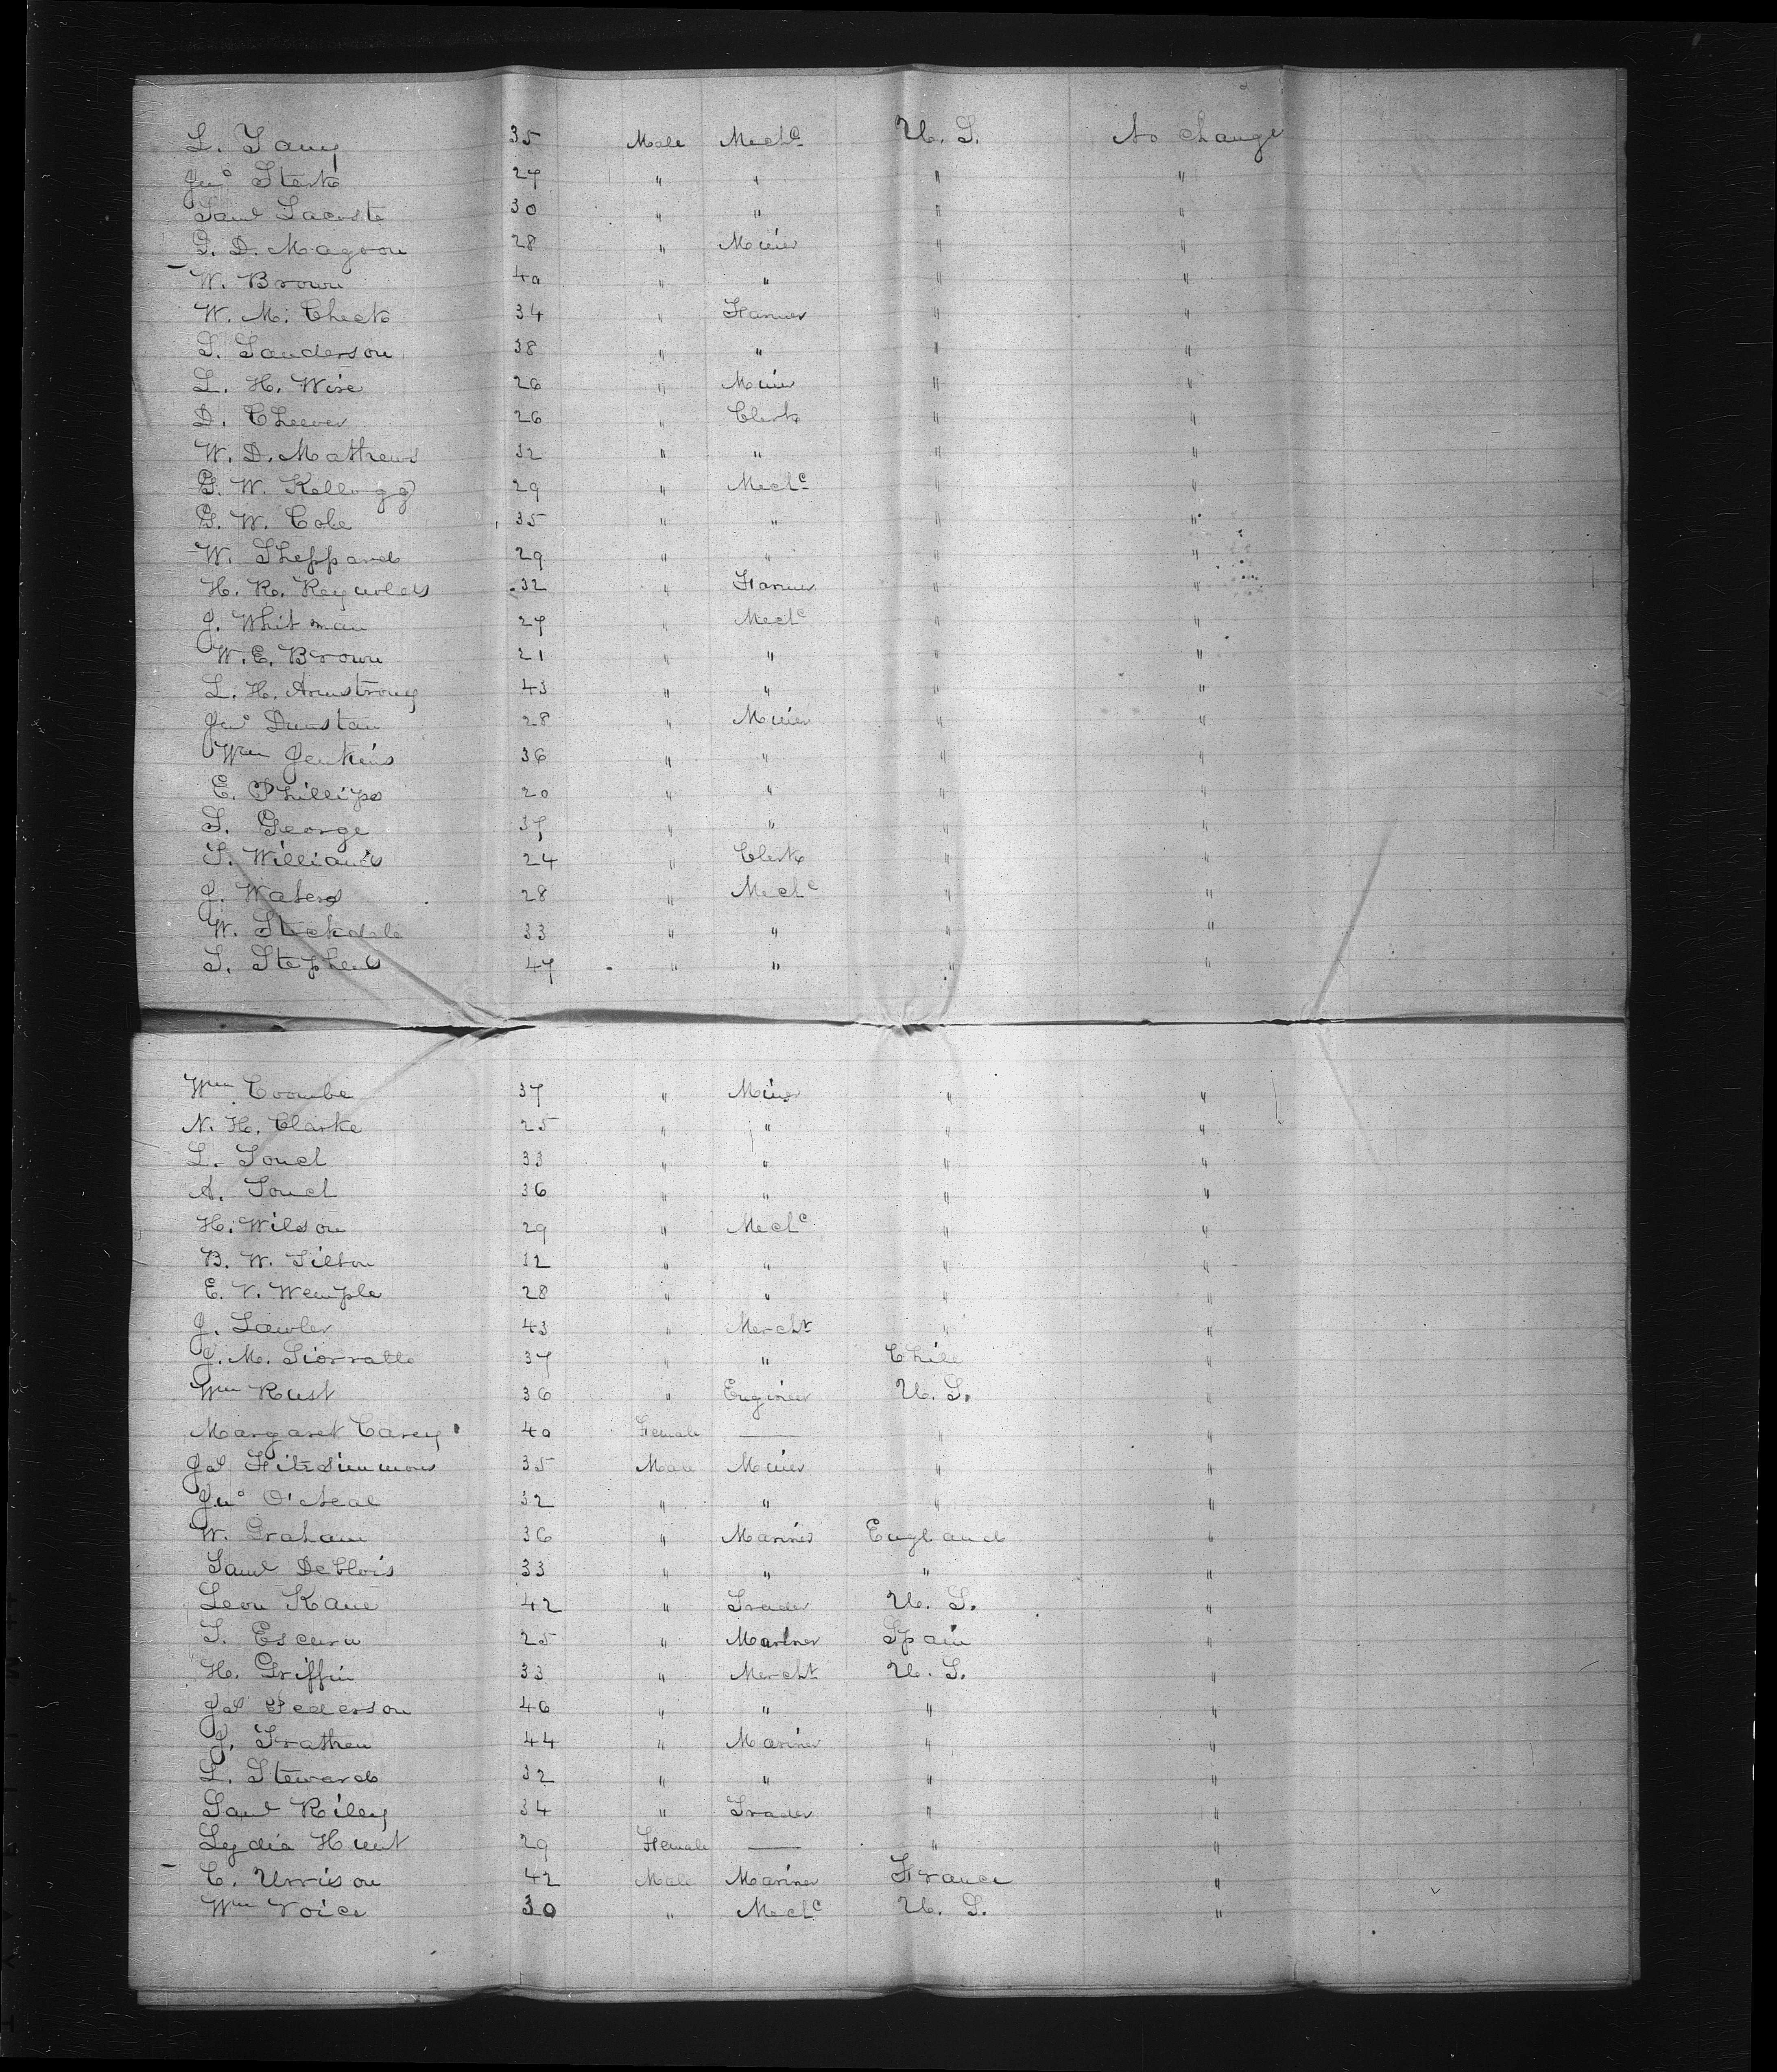 L. Tany 35 Male Mechc U. S. No change
Jno Sterk 27 " " " "
Saml Lacoste 30 " " " "
G. D. Magoon 28 " Miner " "
W. Brown 40 " " " "
W. M. Cheek 34 " Farmer " "
S. Sanderson 38 " " " "
L. H. Wise 26 " Miner " "
D. Cheever 26 " Clerk " "
W. D. Mathews 32 " " " "
G. W. Kellogg 29 " Mechc " "
G. W. Cole 35 " " " "
W. Sheppard 29 " " " "
H. R. Reynolds 32 " Farmer " "
J. Whitman 27 " Mechc " "
W. E. Brown 21 " " " "
L. H. Armstrong 43 " " " "
Jno Dunstan 28 " Miner " "
Wm Jenkins 36 " " " "
E. Phillips 20 " " " "
S. George 37 " " " "
S. Williams 24 " Clerk " "
J. Waters 28 " Mechc " "
W. Stockdale 33 " " " "
S. Stephens 47 " " " "
Wm Coombe 37 " Miner " "
N. H. Clarke 25 " " " "
L. Touch 33 " " " "
A. Touch 36 " " " "
H. Wilson 29 " Mechc " "
B. W. Tilton 12 " " " "
E. V. Wemple 28 " " " "
J. Lawler 43 " Mercht " "
J. M. 37 " " Chile "
Wm Rust 36 " Engineer U. S. "
Margaret Carey 40 Female — " "
Jas Fitzsimmons 35 Male Miner " "
Jno O'Neal 32 " " " "
W. Graham 36 " Mariner England "
Saml DeBlois 33 " " " "
Leon Kane 42 " Trader U. S. "
S. 25 " Mariner Spain "
H. Griffin 33 " Mercht U. S. "
Jas Pederson 46 " " " "
J. Trathen 44 " Mariner " "
L. Steward 32 " " " "
Saml Riley 34 " Trader " "
Lydia Hunt 29 Female — " "
C. Urrison 42 Male Mariner France "
Wm Voice 30 " Mechc U. S. "